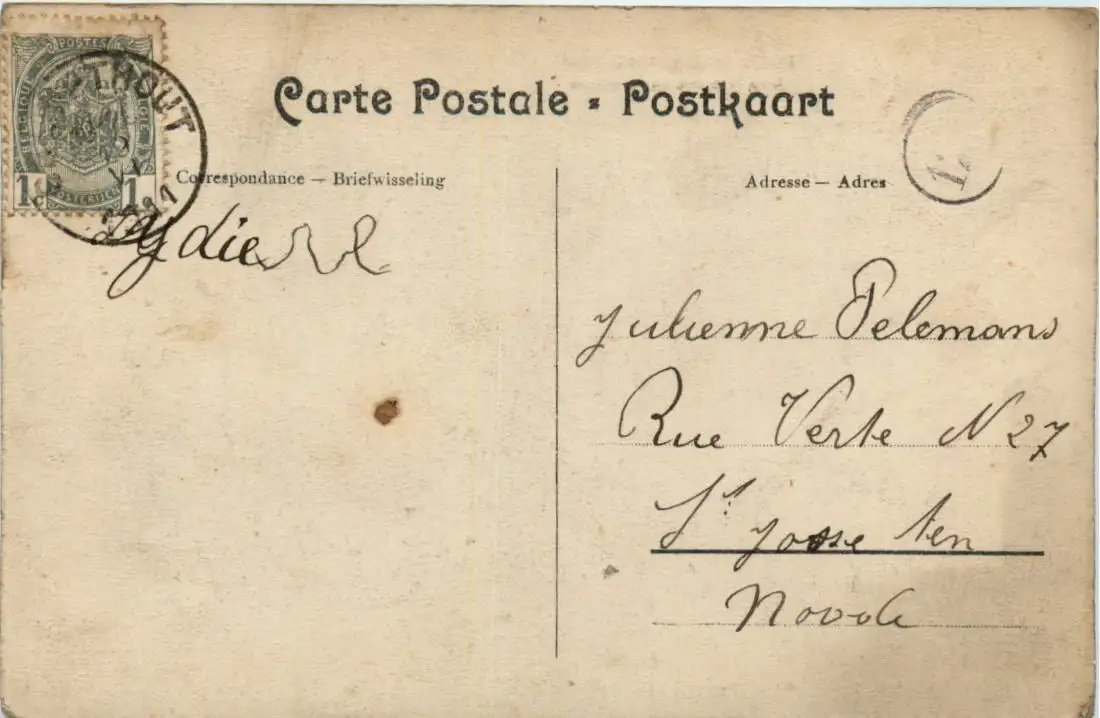 POSTES
1 1
THOUT
11
Carte Postale - Postkaart
Correspondance — Briefwisseling
Adresse — Adres
Lydie
Julienne Pelemans
Rue Verte N 27
St. Josse ten
Novole